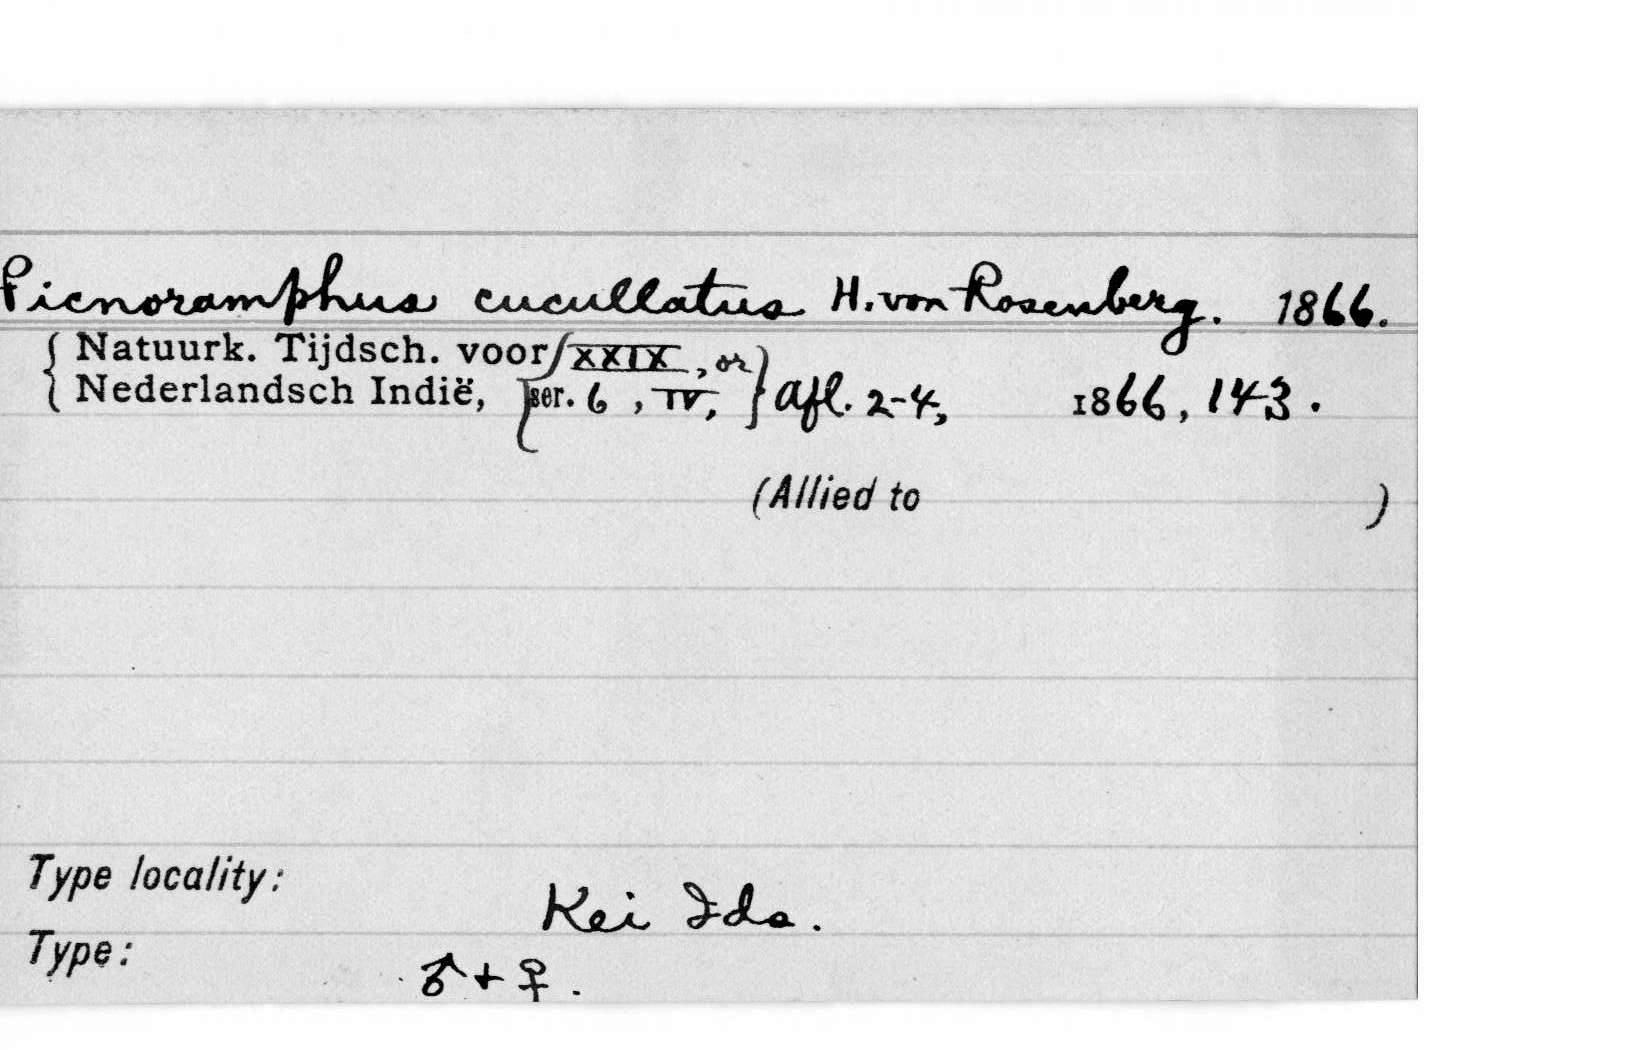 Picnoramphus cucullatus H. von Rosenberg. 1866.
{ Natuurk. Tijdsch. voor { XXIX, or }
{ Nederlandsch Indië, { ser. 6, IV, } Afl. 2-4, 1866, 143.
(Allied to )
Type locality:
Kei Ids.
Type:
♂ + ♀.